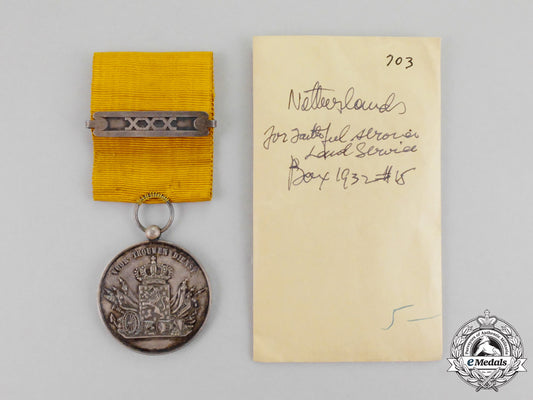 XXX
VOOR TROUWEN DIENST
703
Netherlands
For Faithful
Land Service
Box 1932 #15
5—
eMedals